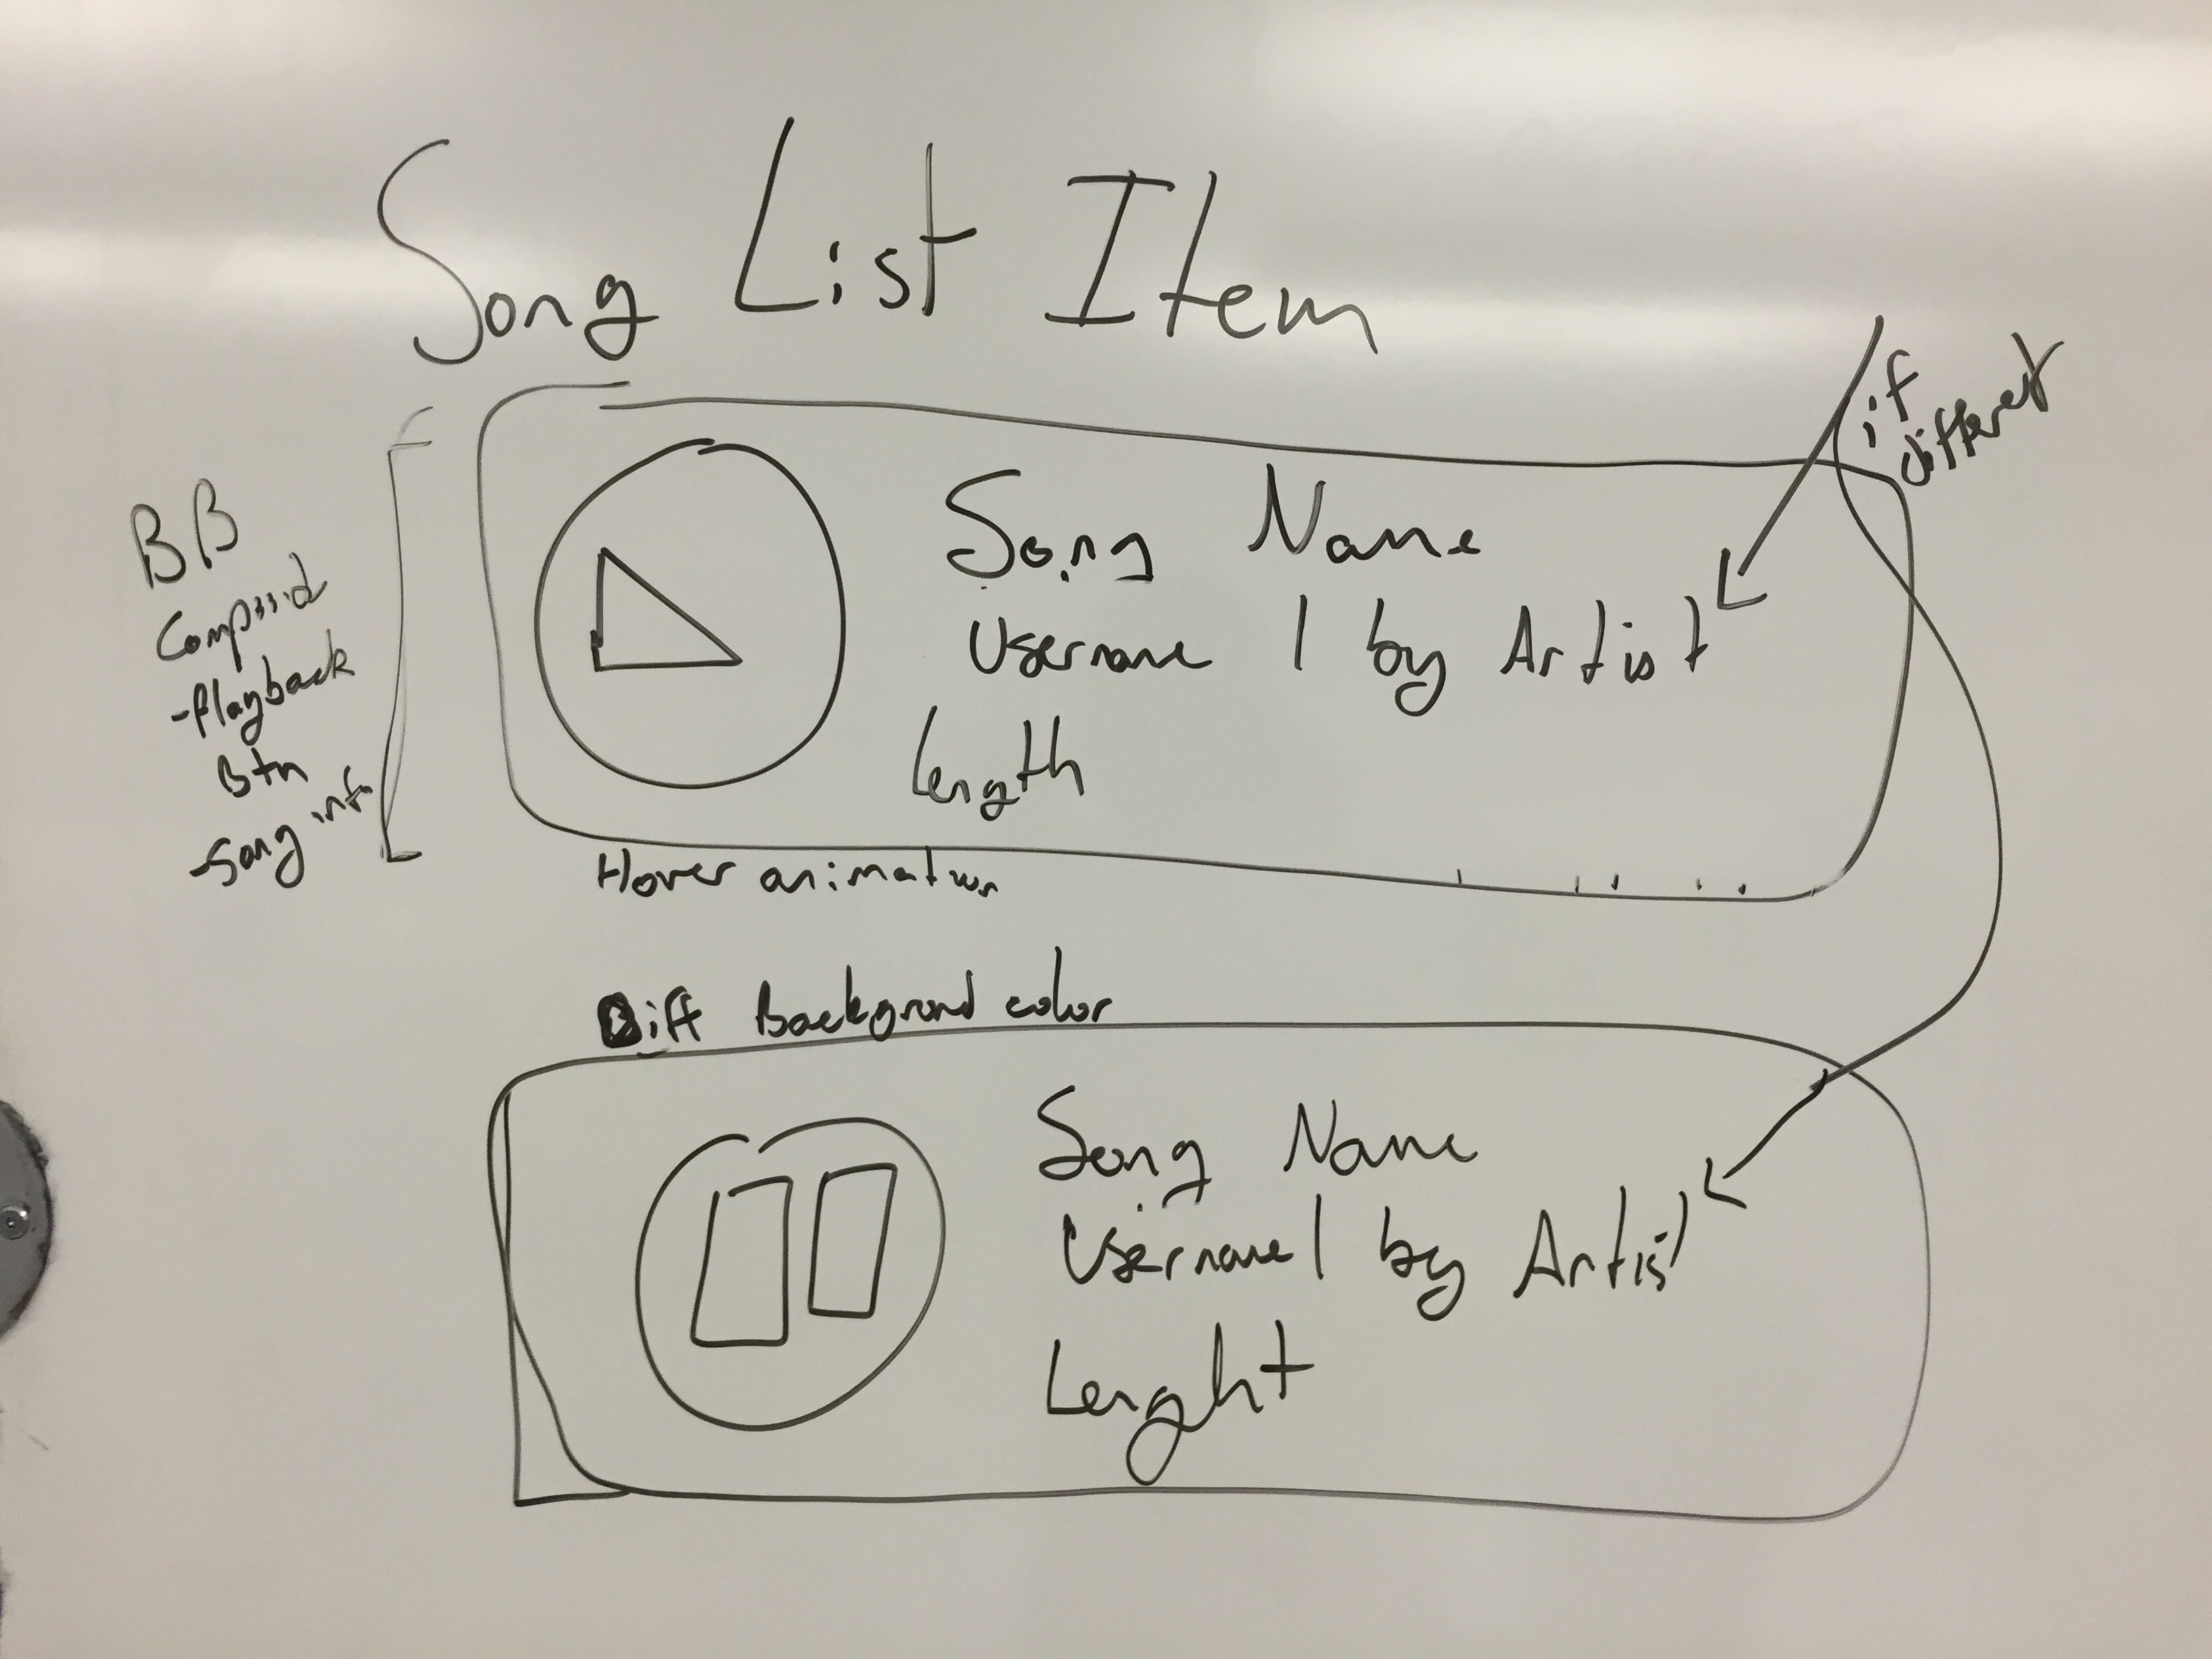 Song List Item
if
differet
BB
Compsid
-Playback
Btn
-Song info
Song Name
Username | by Artist
Length
Hover animation
Diff Background color
Song Name
Username | by Artist
Lenght